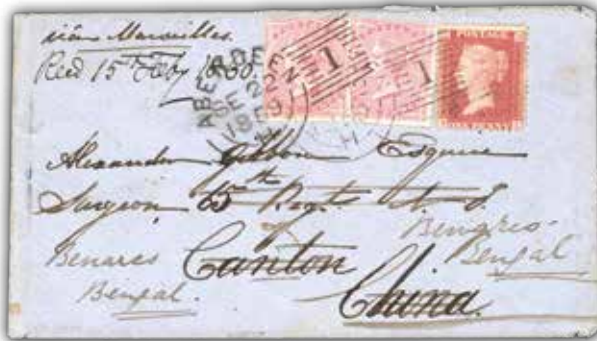 viâ Marseilles.
Recd 15th Feby 1860.
POSTAGE
ONE PENNY
1
1
ABERDEEN
1859
Alexander Gibbon Esquire
Surgeon 65th Regt N I
Benares
Bengal.
Canton
China.
Benares
Bengal